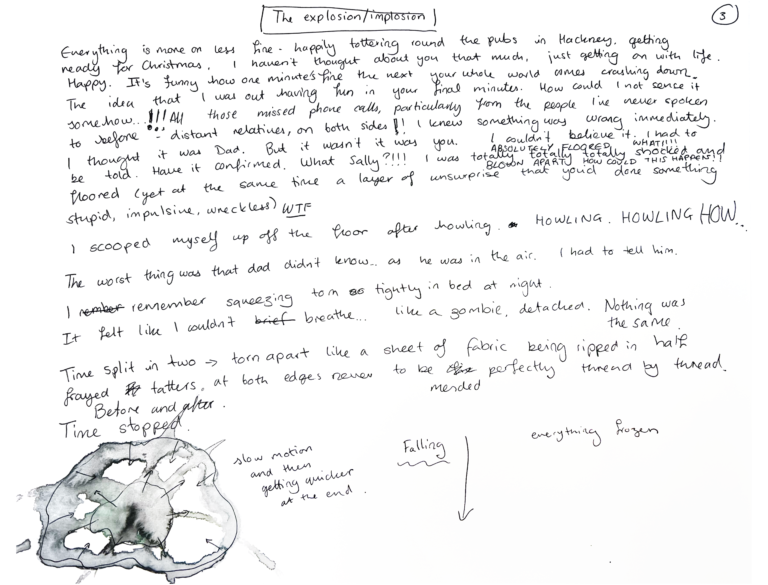 The explosion/implosion
3
Everything is more or less fine - happily tottering round the pubs in Hackney, getting
ready for Christmas. I haven't thought about you that much, just getting on with life.
Happy. It's funny how one minute's fine the next your whole world comes crashing down.
The idea that I was out having fun in your final minutes. How could I not sense it
somehow...!!! All those missed phone calls, particularly from the people I've never spoken
to before!! - distant relatives, on both sides!! I knew something was wrong immediately.
I thought it was Dad. But it wasn't it was you. I couldn't believe it. I had to
be told. Have it confirmed. What Sally?!!! I was totally totally totally shocked and
ABSOLUTELY FLOORED WHAT!!!!
BLOWN APART! HOW COULD THIS HAPPEN!!
floored (yet at the same time a layer of unsurprise that you'd done something
stupid, impulsive, wreckless) WTF
I scooped myself up off the floor after howling. HOWLING. HOWLING HOW...
The worst thing was that dad didn't know... as he was in the air. I had to tell him.
I rember remember squeezing tom so tightly in bed at night.
It felt like I couldn't brief breathe... like a zombie, detached. Nothing was
the same.
Time split in two → torn apart like a sheet of fabric being ripped in half
frayed tatters, at both edges never to be perfectly thread by thread.
mended
Before and after.
Time stopped.
slow motion
and then
getting quicker
at the end.
Falling
everything frozen